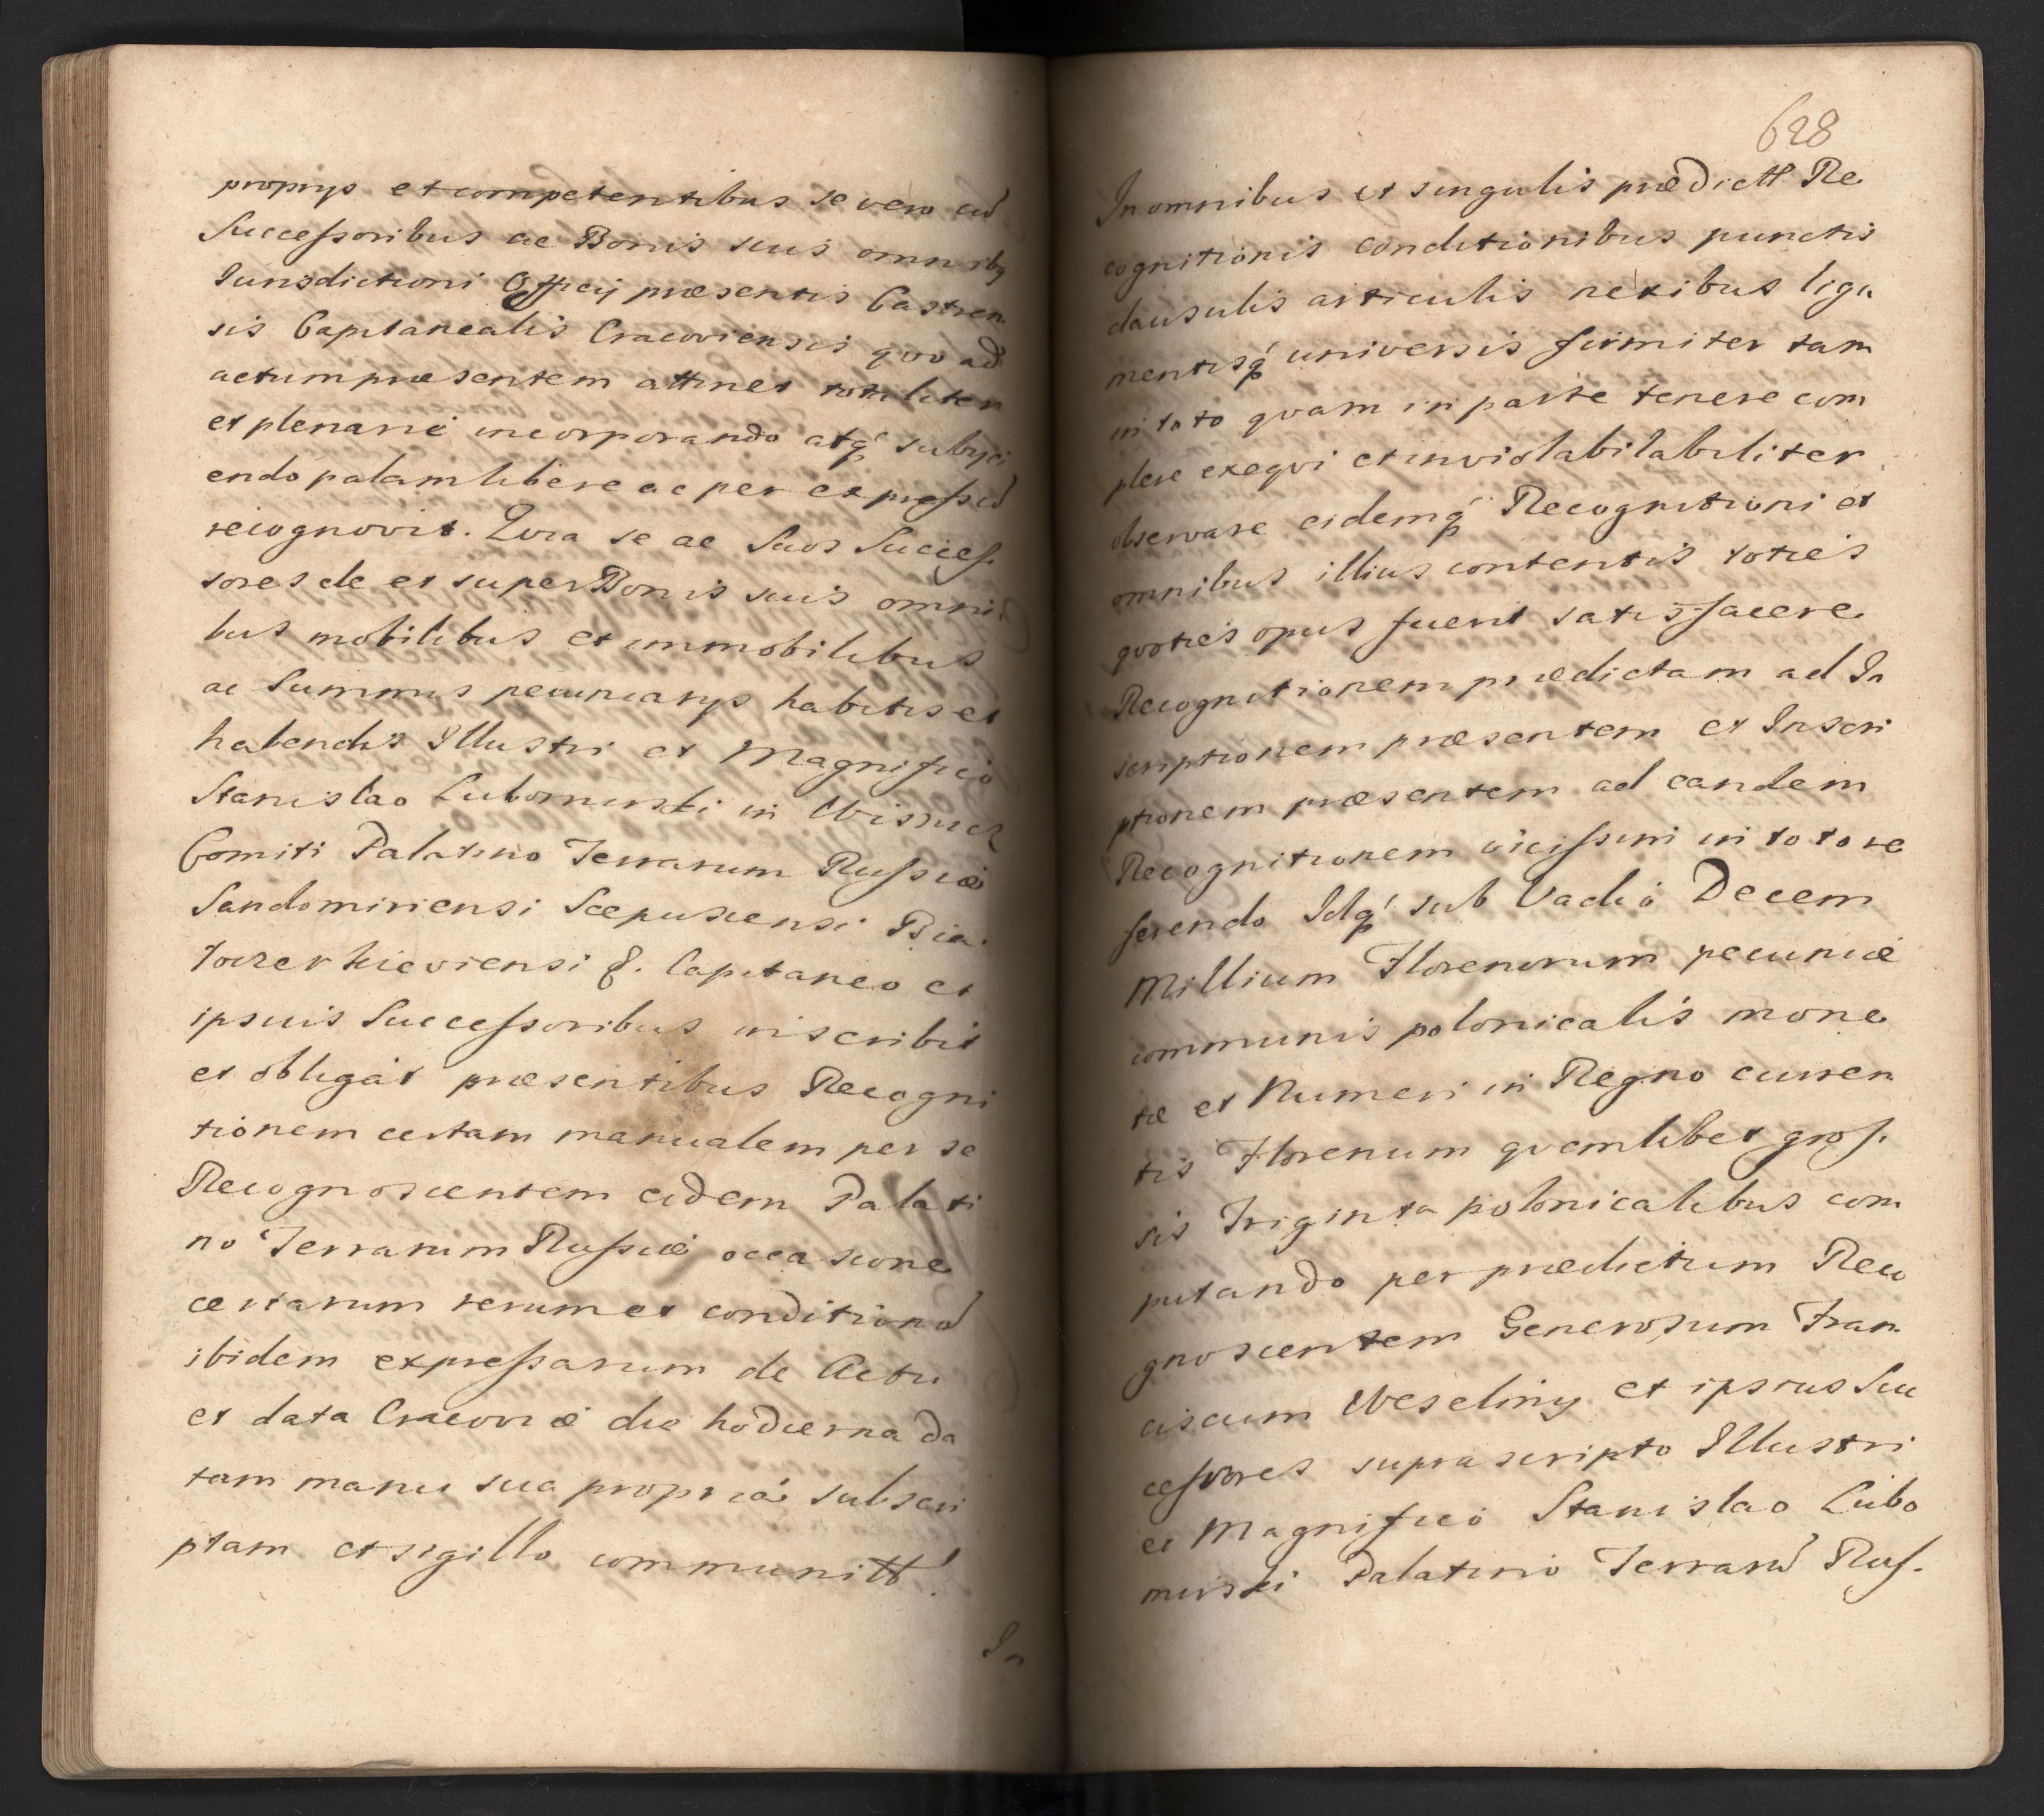 proprys et competentibus se vero cū
Successoribus ac Bonis suis omnibq
Iurisdictioni Officij præsentis Castren
sis Capitanealis Cracoviensis quo ad
actum præsentem attinet totaliter
et plenarie incorporando atq́ subyci
endo palam libere ac per expressū
recognovit. Quia se ac Suos Succes
sores de et super Bonis suis omni
bus mobilibus et immobilibus
ac Summis pecuniarys habitis et
habendis Illustri et Magnifico
Stanislao Lubomirski in Wisnicz
Comiti Palatino Terrarum Russiæ
Sandomiriensi Scepusiensi Bia
locerkieviensi &. Capitaneo et
ipsuis Successoribus inscribit
et obligat præsentibus Recogni
tionem certam manualem per se
Recognoscentem eidem Palati
no Terrarum Russiæ occasione
certarum rerum et conditionū
ibidem expressarum de Actu
et data Cracoviæ die hodierna da
tam manu sua propria subscri
ptam et sigillo communitt.
In
628
In omnibus et singulis prædictt Re
cognitionis conditionibus punctis
clausulis articulis nexibus liga
mentisq́ universis firmiter tam
in toto qvam in parte tenere com
plere exeqvi et inviolabilabiliter
observare eidemq́ Recognitioni et
omnibus illius contentis toties
qvoties opus fuerit satisfacere
Recognitionem prædictam ad In
scriptionem præsentem et Inscri
ptionem præsentem ad eandem
Recognitionem vicissim in toto re
ferendo Idq́ sub Vadio Decem
Millium Florenorum pecuniæ
communis polonicalis mone
tæ et Numeri in Regno curren
tis Florenum qvemlibet gros
sis Triginta polonicalibus com
putando per prædictum Reco
gnoscentem Generosum Fran
ciscum Weseliny et ipsius Suc
cessores suprascripto Illustri
et Magnifico Stanislao Lubo
mirski Palatino Terrarū Rus.